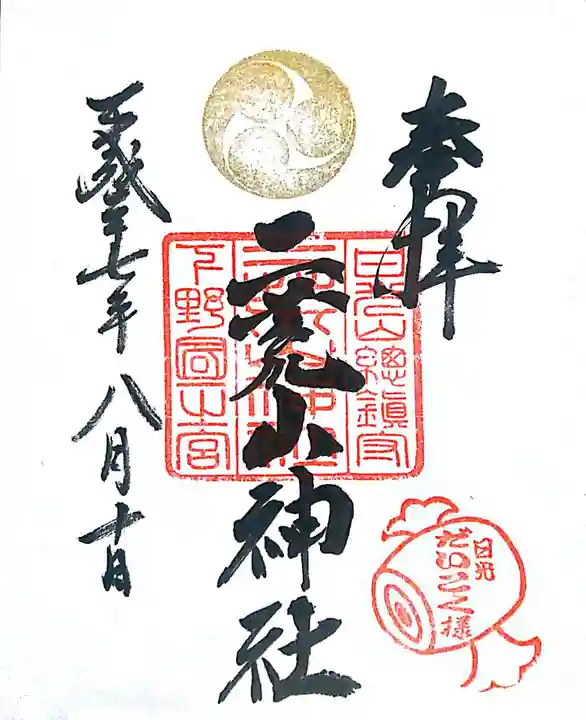 奉拝
日光山總鎮守
二荒山神社
二荒山神社
下野國一之宮
平成二十七年八月十日
日光
だいこく様